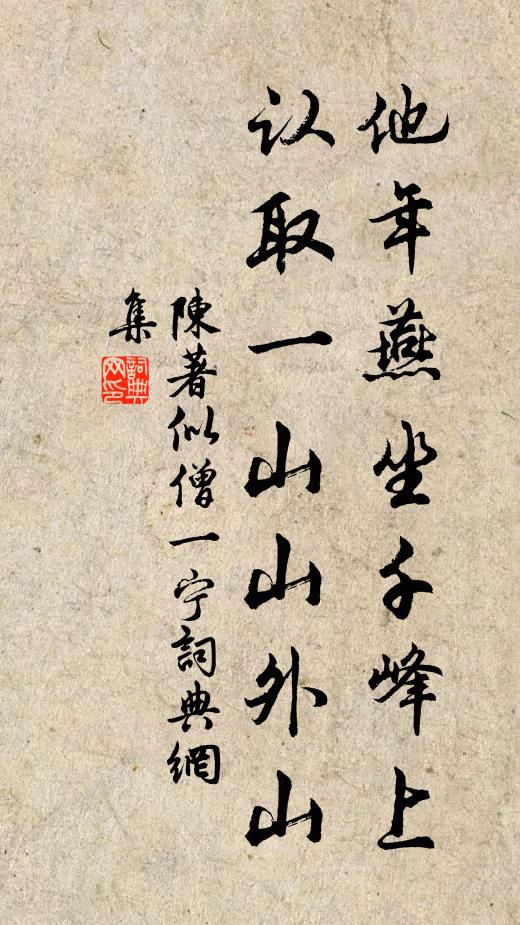 他年燕坐千峰上
认取一山山外山
陳著似僧一宁詞典網
集
詞典
网印